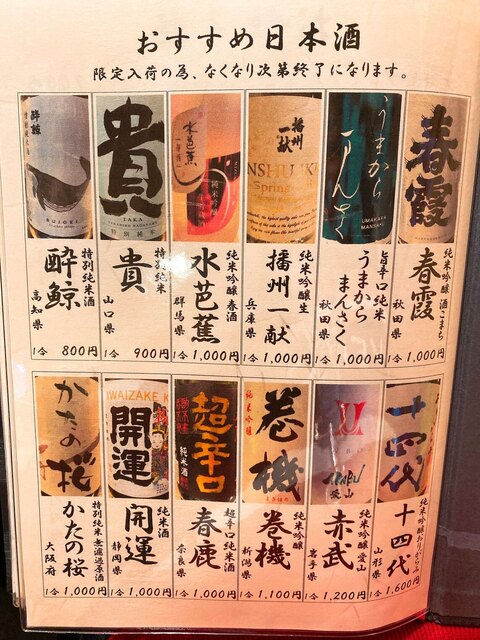 おすすめ日本酒
限定入荷の為、なくなり次第終了になります。
酔鯨
SUIGEI
特別純米酒
酔鯨
高知県
1合 800円
貴
TAKA
特別純米
特別純米
貴
山口県
1合 900円
水芭蕉
純米吟醸
純米吟醸 春酒
水芭蕉
群馬県
1合 1,000円
播州一献
NSHU IK
Spring
純米吟醸生
播州一献
兵庫県
1合 1,000円
うまからまんさく
UMAKARA
MANSAKU
旨辛口純米
うまからまんさく
秋田県
1合 1,000円
春霞
純米吟醸 酒こまち
春霞
秋田県
1合 1,000円
かたの桜
特別純米無濾過原酒
かたの桜
大阪府
1合 1,000円
IWAIZAKE K
開運
純米酒
開運
静岡県
1合 1,000円
超辛口
純米酒
超辛口純米酒
春鹿
奈良県
1合 1,000円
純米吟醸
巻機
純米吟醸
巻機
新潟県
1合 1,100円
AKABU
愛山
純米吟醸愛山
赤武
岩手県
1合 1,200円
十四代
純米吟醸おりからみ
十四代
山形県
1合 1,600円